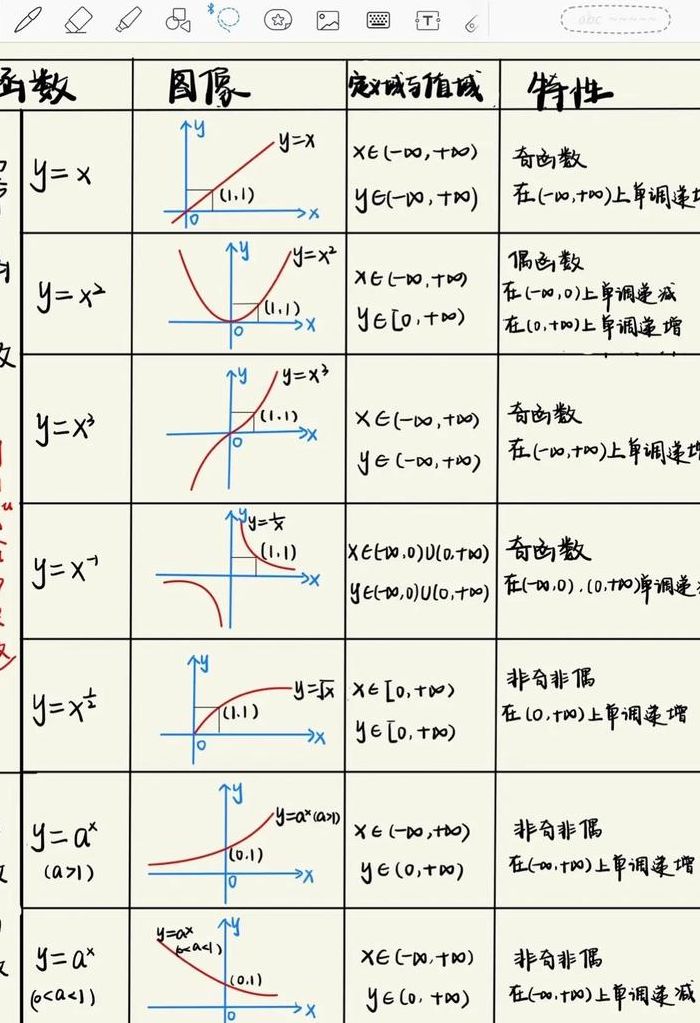 函数 图像 定义域与值域 特性
y=x
y
y=x
(1,1)
0
x
x∈(-∞,+∞)
y∈(-∞,+∞)
奇函数
在(-∞,+∞)上单调递增
y=x²
y
y=x²
(1,1)
0
x
x∈(-∞,+∞)
y∈[0,+∞)
偶函数
在(-∞,0)上单调递减
在(0,+∞)上单调递增
y=x³
y
y=x³
(1,1)
0
x
x∈(-∞,+∞)
y∈(-∞,+∞)
奇函数
在(-∞,+∞)上单调递增
y=x⁻¹
y
y=1/x
(1,1)
x
x∈(-∞,0)∪(0,+∞)
y∈(-∞,0)∪(0,+∞)
奇函数
在(-∞,0),(0,+∞)单调递减
y=x^½
y
y=√x
(1,1)
0
x
x∈[0,+∞)
y∈[0,+∞)
非奇非偶
在(0,+∞)上单调递增
y=aˣ
(a>1)
y
y=aˣ(a>1)
(0,1)
0
x
x∈(-∞,+∞)
y∈(0,+∞)
非奇非偶
在(-∞,+∞)上单调递增
y=aˣ
(0<a<1)
y=aˣ
(0<a<1)
y
(0,1)
0
x
x∈(-∞,+∞)
y∈(0,+∞)
非奇非偶
在(-∞,+∞)上单调递减